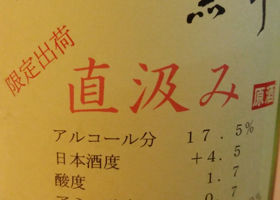 限定出荷
直汲み
原酒
アルコール分 17.5%
日本酒度 +4.5
酸度 1.7